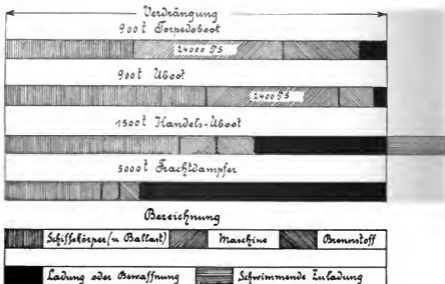 Verdrängung
900t Torpedoboot
24000 PS
900t Uboot
2400 PS
1500t Handels-Uboot
5000t Frachtdampfer
Bezeichnung
Schiffskörper (u Ballast) Maschine Brennstoff
Ladung oder Bewaffnung Schwimmende Zuladung